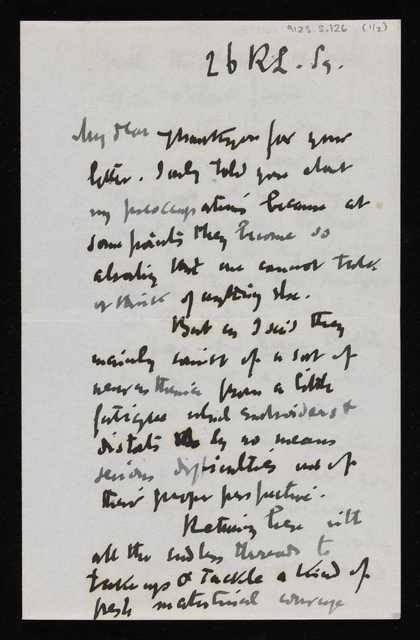 9125.5.126 (1/2)
26 R.L. Sq.
My dear thankyou for your
letter. I only told you about
my preoccupations because at
some points they become so
absorbing that one cannot talk
or think of anything else.
But as I said they
mainly consist of a sort of
neurasthenia from a little
fatigue which embroiders &
distorts by no means
serious difficulties out of
their proper perspective.
Retiring here with
all the endless threads to
take up & tackle a kind of
fresh material courage